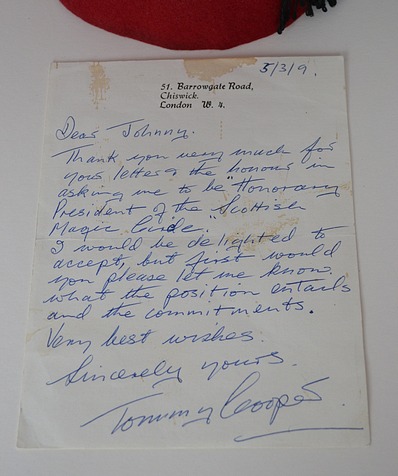 5/3/9.
51. Barrowgate Road,
Chiswick.
London W. 4.
Dear Johnny.
Thank you very much for
your letter & the honour in
asking me to be "Honorary
President of the "Scottish
Magic Circle."
I would be delighted to
accept, but first would
you please let me know.
what the position entails
and the commitments.
Very best wishes.
Sincerely yours.
Tommy Cooper.